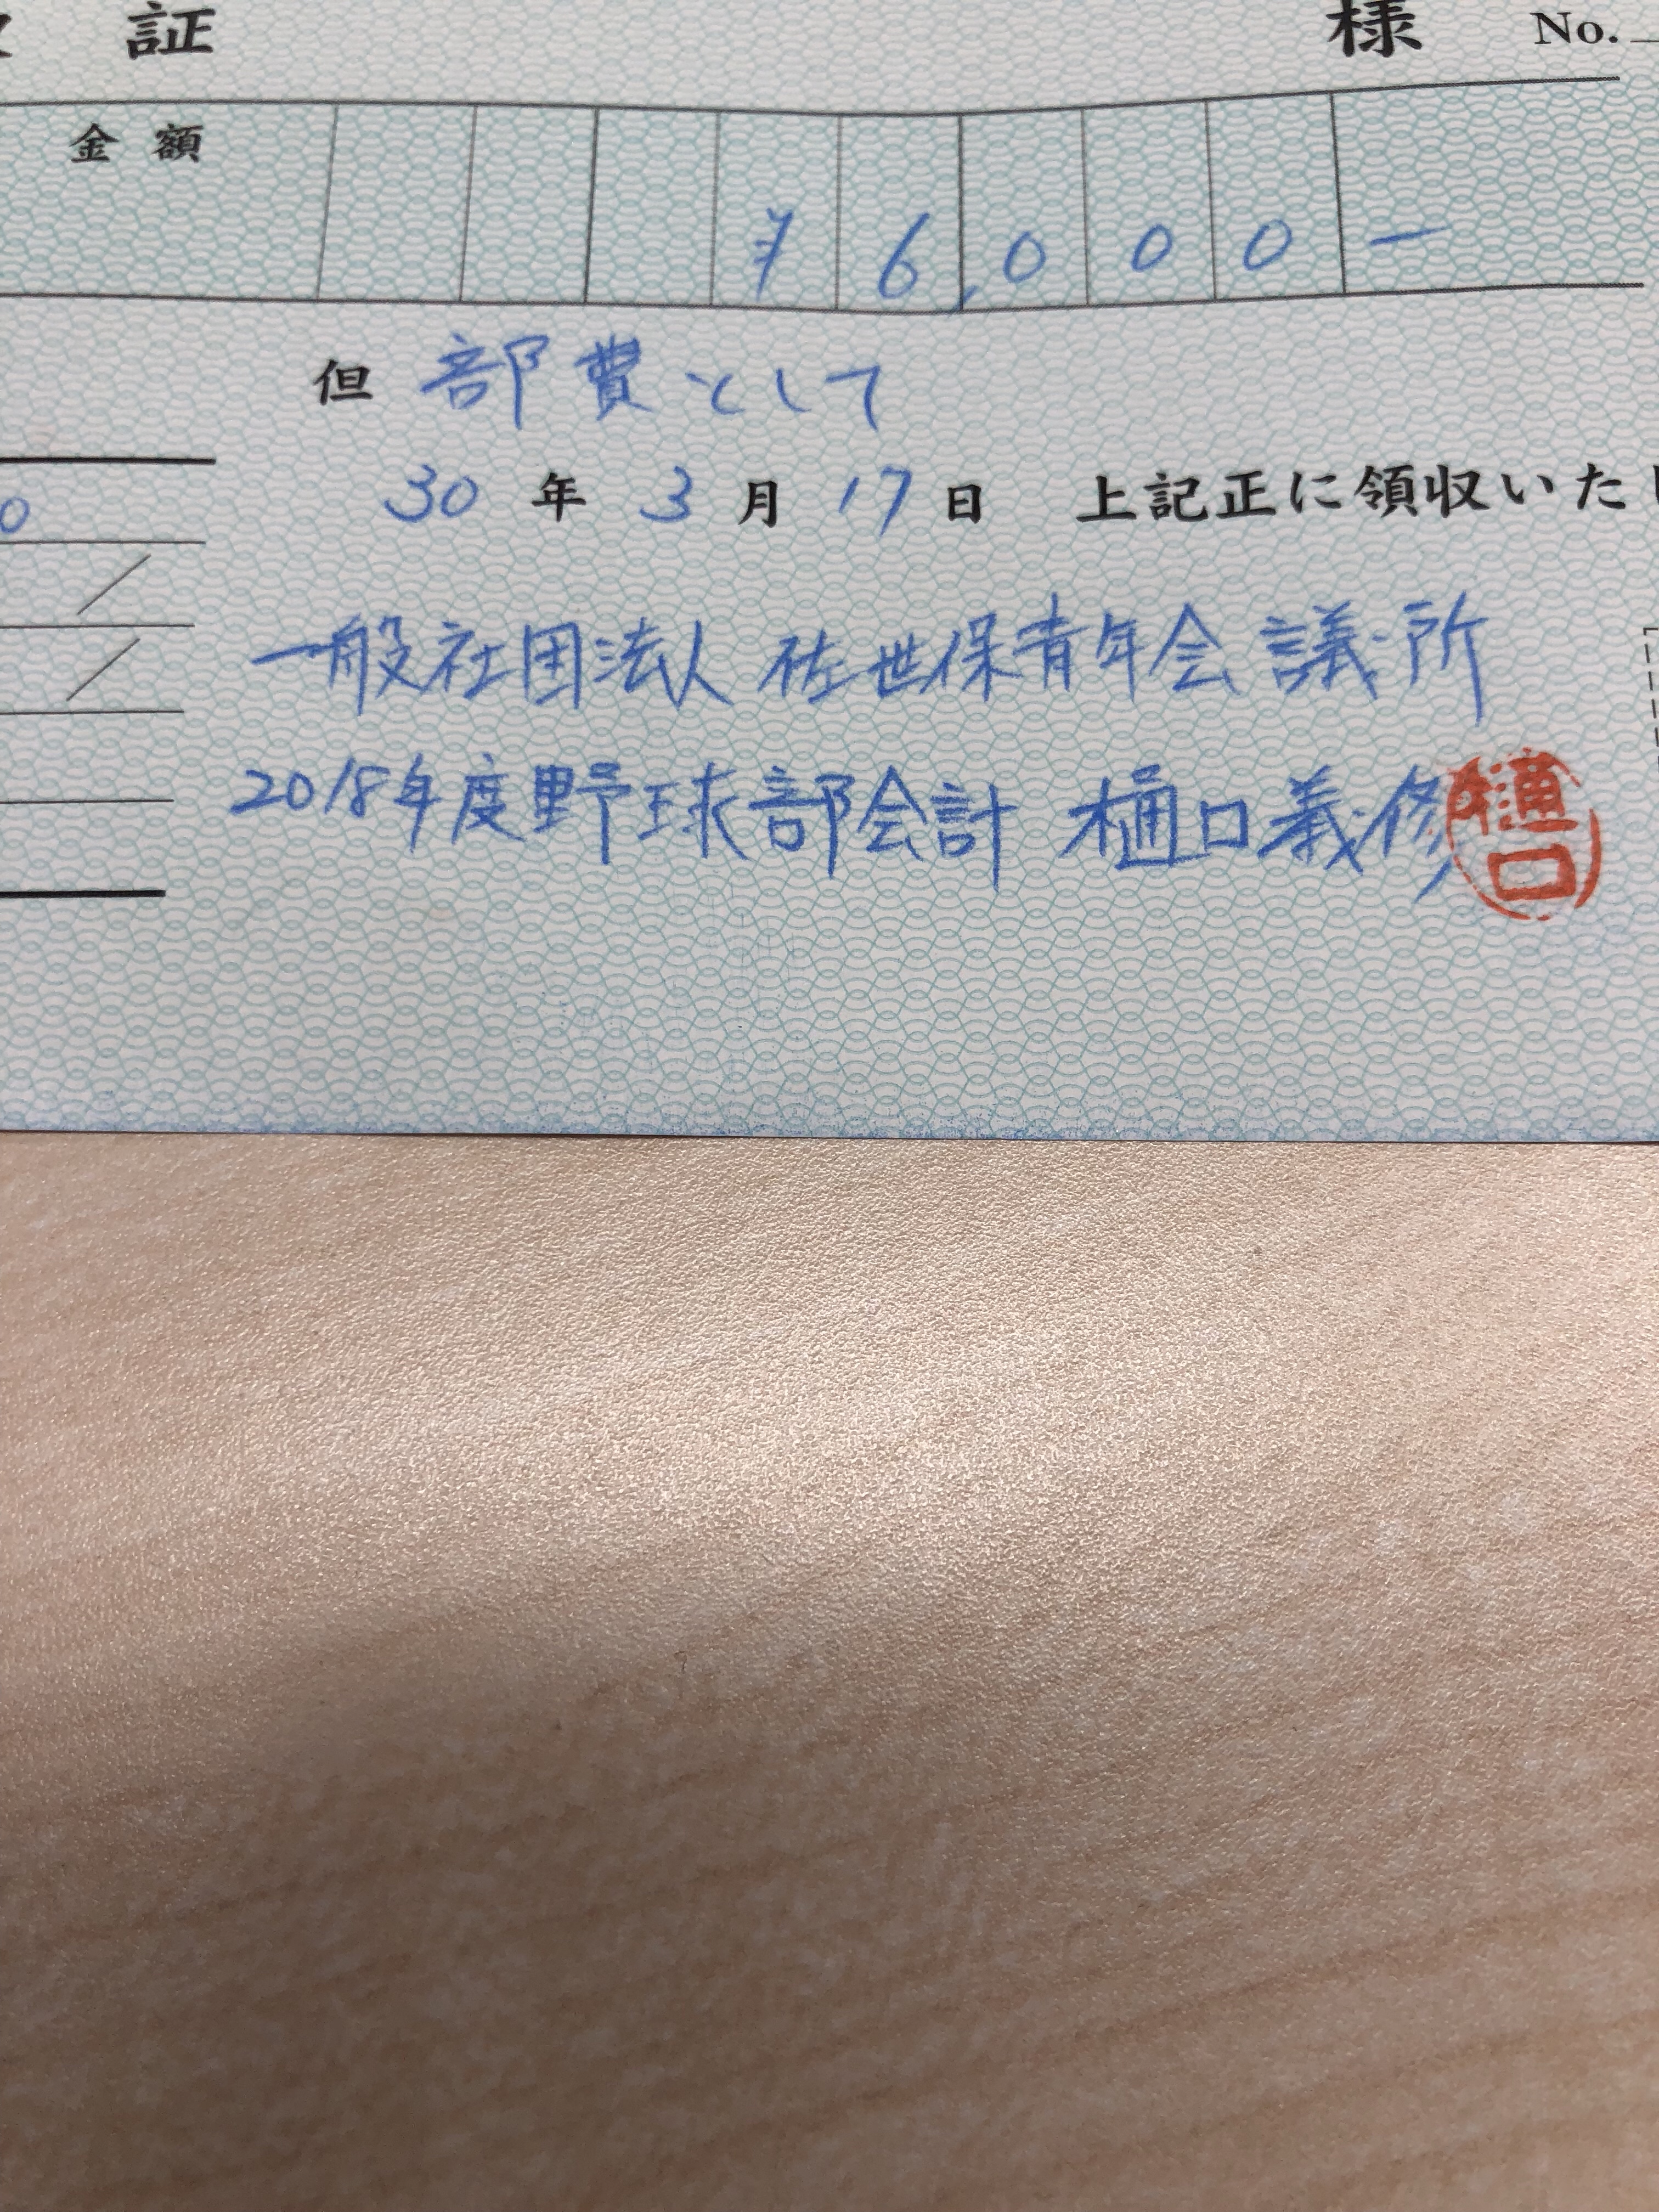 証 様 No.
金額 ¥6,000-
但 部費として
30年3月17日 上記正に領収いた
0
一般社団法人 佐世保青年会議所
2018年度野球部会計 樋口義修
樋口